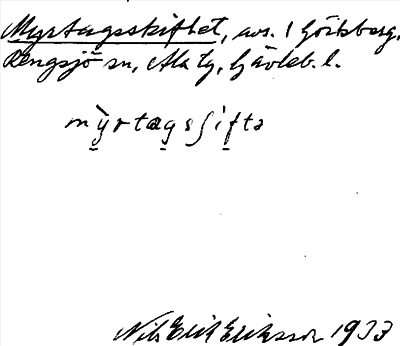 Myrtagsskiftet, avs. i Höitsberg,
Rengsjö sn, Ala tg, Gävleb. l.
mỳrtagsʃifta
Nils Erik Eriksson 1933